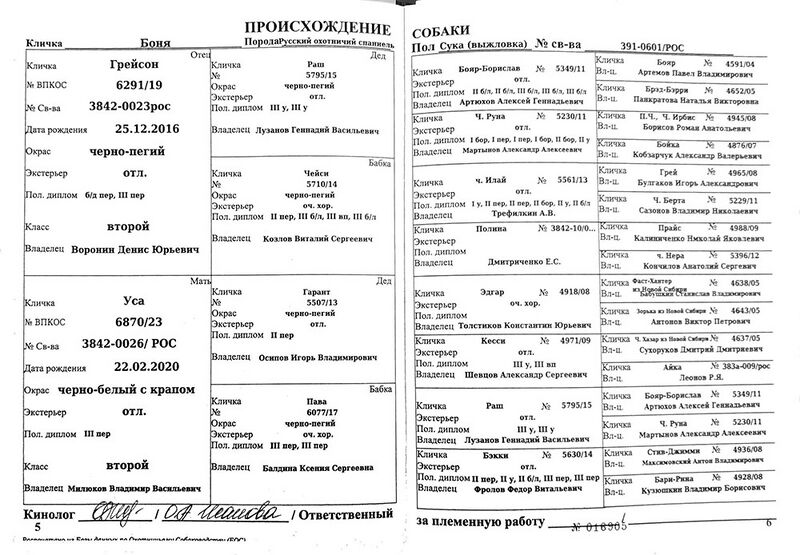 ПРОИСХОЖДЕНИЕ
Кличка Боня Порода Русский охотничий спаниель
Отец
Кличка Грейсон
№ ВПКОС 6291/19
№ Св-ва 3842-0023рос
Дата рождения 25.12.2016
Окрас черно-пегий
Экстерьер отл.
Пол. диплом б/д пер, III пер
Класс второй
Владелец Воронин Денис Юрьевич
Дед
Кличка Раш
№ 5795/15
Окрас черно-пегий
Экстерьер отл.
Пол. диплом III у, III у
Владелец Лузанов Геннадий Васильевич
Бабка
Кличка Чейси
№ 5710/14
Окрас черно-пегий
Экстерьер оч. хор.
Пол. диплом II пер, III б/л, III вп, III б/л
Владелец Козлов Виталий Сергеевич
Мать
Кличка Уса
№ ВПКОС 6870/23
№ Св-ва 3842-0026/ РОС
Дата рождения 22.02.2020
Окрас черно-белый с крапом
Экстерьер отл.
Пол. диплом III пер
Класс второй
Владелец Милюков Владимир Васильевич
Дед
Кличка Гарант
№ 5507/13
Окрас черно-пегий
Экстерьер отл.
Пол. диплом II пер
Владелец Осипов Игорь Владимирович
Бабка
Кличка Пава
№ 6077/17
Окрас черно-пегий
Экстерьер оч. хор.
Пол. диплом III пер, III пер
Владелец Балдина Ксения Сергеевна
Кинолог / / Ответственный
5
СОБАКИ
Пол Сука (выжловка) № св-ва 391-0601/РОС
Кличка Бояр-Борислав № 5349/11
Экстерьер отл.
Пол. диплом II б/л, II б/л, III б/л, III б/л, III б/л
Владелец Артюхов Алексей Геннадьевич
Кличка Ч. Руна № 5230/11
Экстерьер отл.
Пол. диплом I бор, I пер, I бор, II бор, II у
Владелец Мартынов Александр Алексеевич
Кличка ч. Илай № 5561/13
Экстерьер отл.
Пол. диплом I у, II пер, II пер, II бор, II у, II б/л
Владелец Трефилкин А.В.
Кличка Полина № 3842-10/0...
Экстерьер
Пол. диплом
Владелец Дмитриченко Е.С.
Кличка Эдгар № 4918/08
Экстерьер оч. хор.
Пол. диплом
Владелец Толстиков Константин Юрьевич
Кличка Кесси № 4971/09
Экстерьер отл.
Пол. диплом III у, III вп
Владелец Шевцов Александр Сергеевич
Кличка Раш № 5795/15
Экстерьер отл.
Пол. диплом III у, III у
Владелец Лузанов Геннадий Васильевич
Кличка Бэкки № 5630/14
Экстерьер отл.
Пол. диплом II пер, II у, II б/л, III пер, III пер
Владелец Фролов Федор Витальевич
Кличка Бояр № 4591/04
Вл-ц. Артемов Павел Владимирович
Кличка Брэд-Бэрри № 4652/05
Вл-ц. Панкратова Наталья Викторовна
Кличка П.Ч., Ч. Ирбис № 4945/08
Вл-ц. Борисов Роман Анатольевич
Кличка Бойка № 4876/07
Вл-ц. Кобзарчук Александр Валерьевич
Кличка Грей № 4965/08
Вл-ц. Булгаков Игорь Александрович
Кличка Ч. Берта № 5229/11
Вл-ц. Сазонов Владимир Николаевич
Кличка Прайс № 4988/09
Вл-ц. Калиниченко Нмколай Яковлевич
Кличка ч. Нера № 5396/12
Вл-ц. Кончилов Анатолий Сергевич
Кличка Фаст-Хантер из Новой Сибири № 4638/05
Вл-ц. Бабушкин Станислав Владимирович
Кличка Зорька из Новой Сибири № 4643/05
Вл-ц. Антонов Виктор Петрович
Кличка Ч. Хазар из Новой Сибири № 4637/05
Вл-ц. Сухоруков Дмитрий Дмитриевич
Кличка Айка № 383а-009/рос
Вл-ц. Леонов Р.Я.
Кличка Бояр-Борислав № 5349/11
Вл-ц. Артюхов Алексей Геннадьевич
Кличка Ч. Руна № 5230/11
Вл-ц. Мартынов Александр Алексеевич
Кличка Стив-Джимми № 4936/08
Вл-ц. Максимовский Антон Владимирович
Кличка Бари-Рина № 4928/08
Вл-ц. Кузюшкин Владимир Борисович
за племенную работу № 018905
6